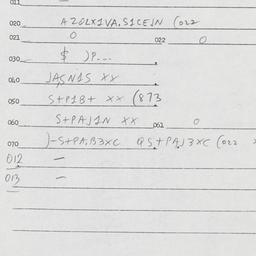 011
020 AZOLX1VA,S1CEJN (022
021 0 022 0
030 $ )P...
040 JASN1S XX
050 S+P18+ XX (873
060 S+PAJ1N XX 061 0
070 )-S+PA,B3XC QS+PAJ3XC (022
012 -
013 -